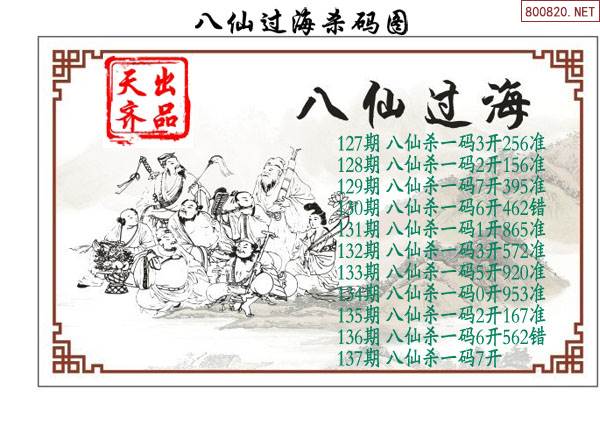 800820.NET
八仙过海杀码图
天出
齐品
八仙过海
127期 八仙杀一码3开256准
128期 八仙杀一码2开156准
129期 八仙杀一码7开395准
130期 八仙杀一码6开462错
131期 八仙杀一码1开865准
132期 八仙杀一码3开572准
133期 八仙杀一码5开920准
134期 八仙杀一码0开953准
135期 八仙杀一码2开167准
136期 八仙杀一码6开562错
137期 八仙杀一码7开